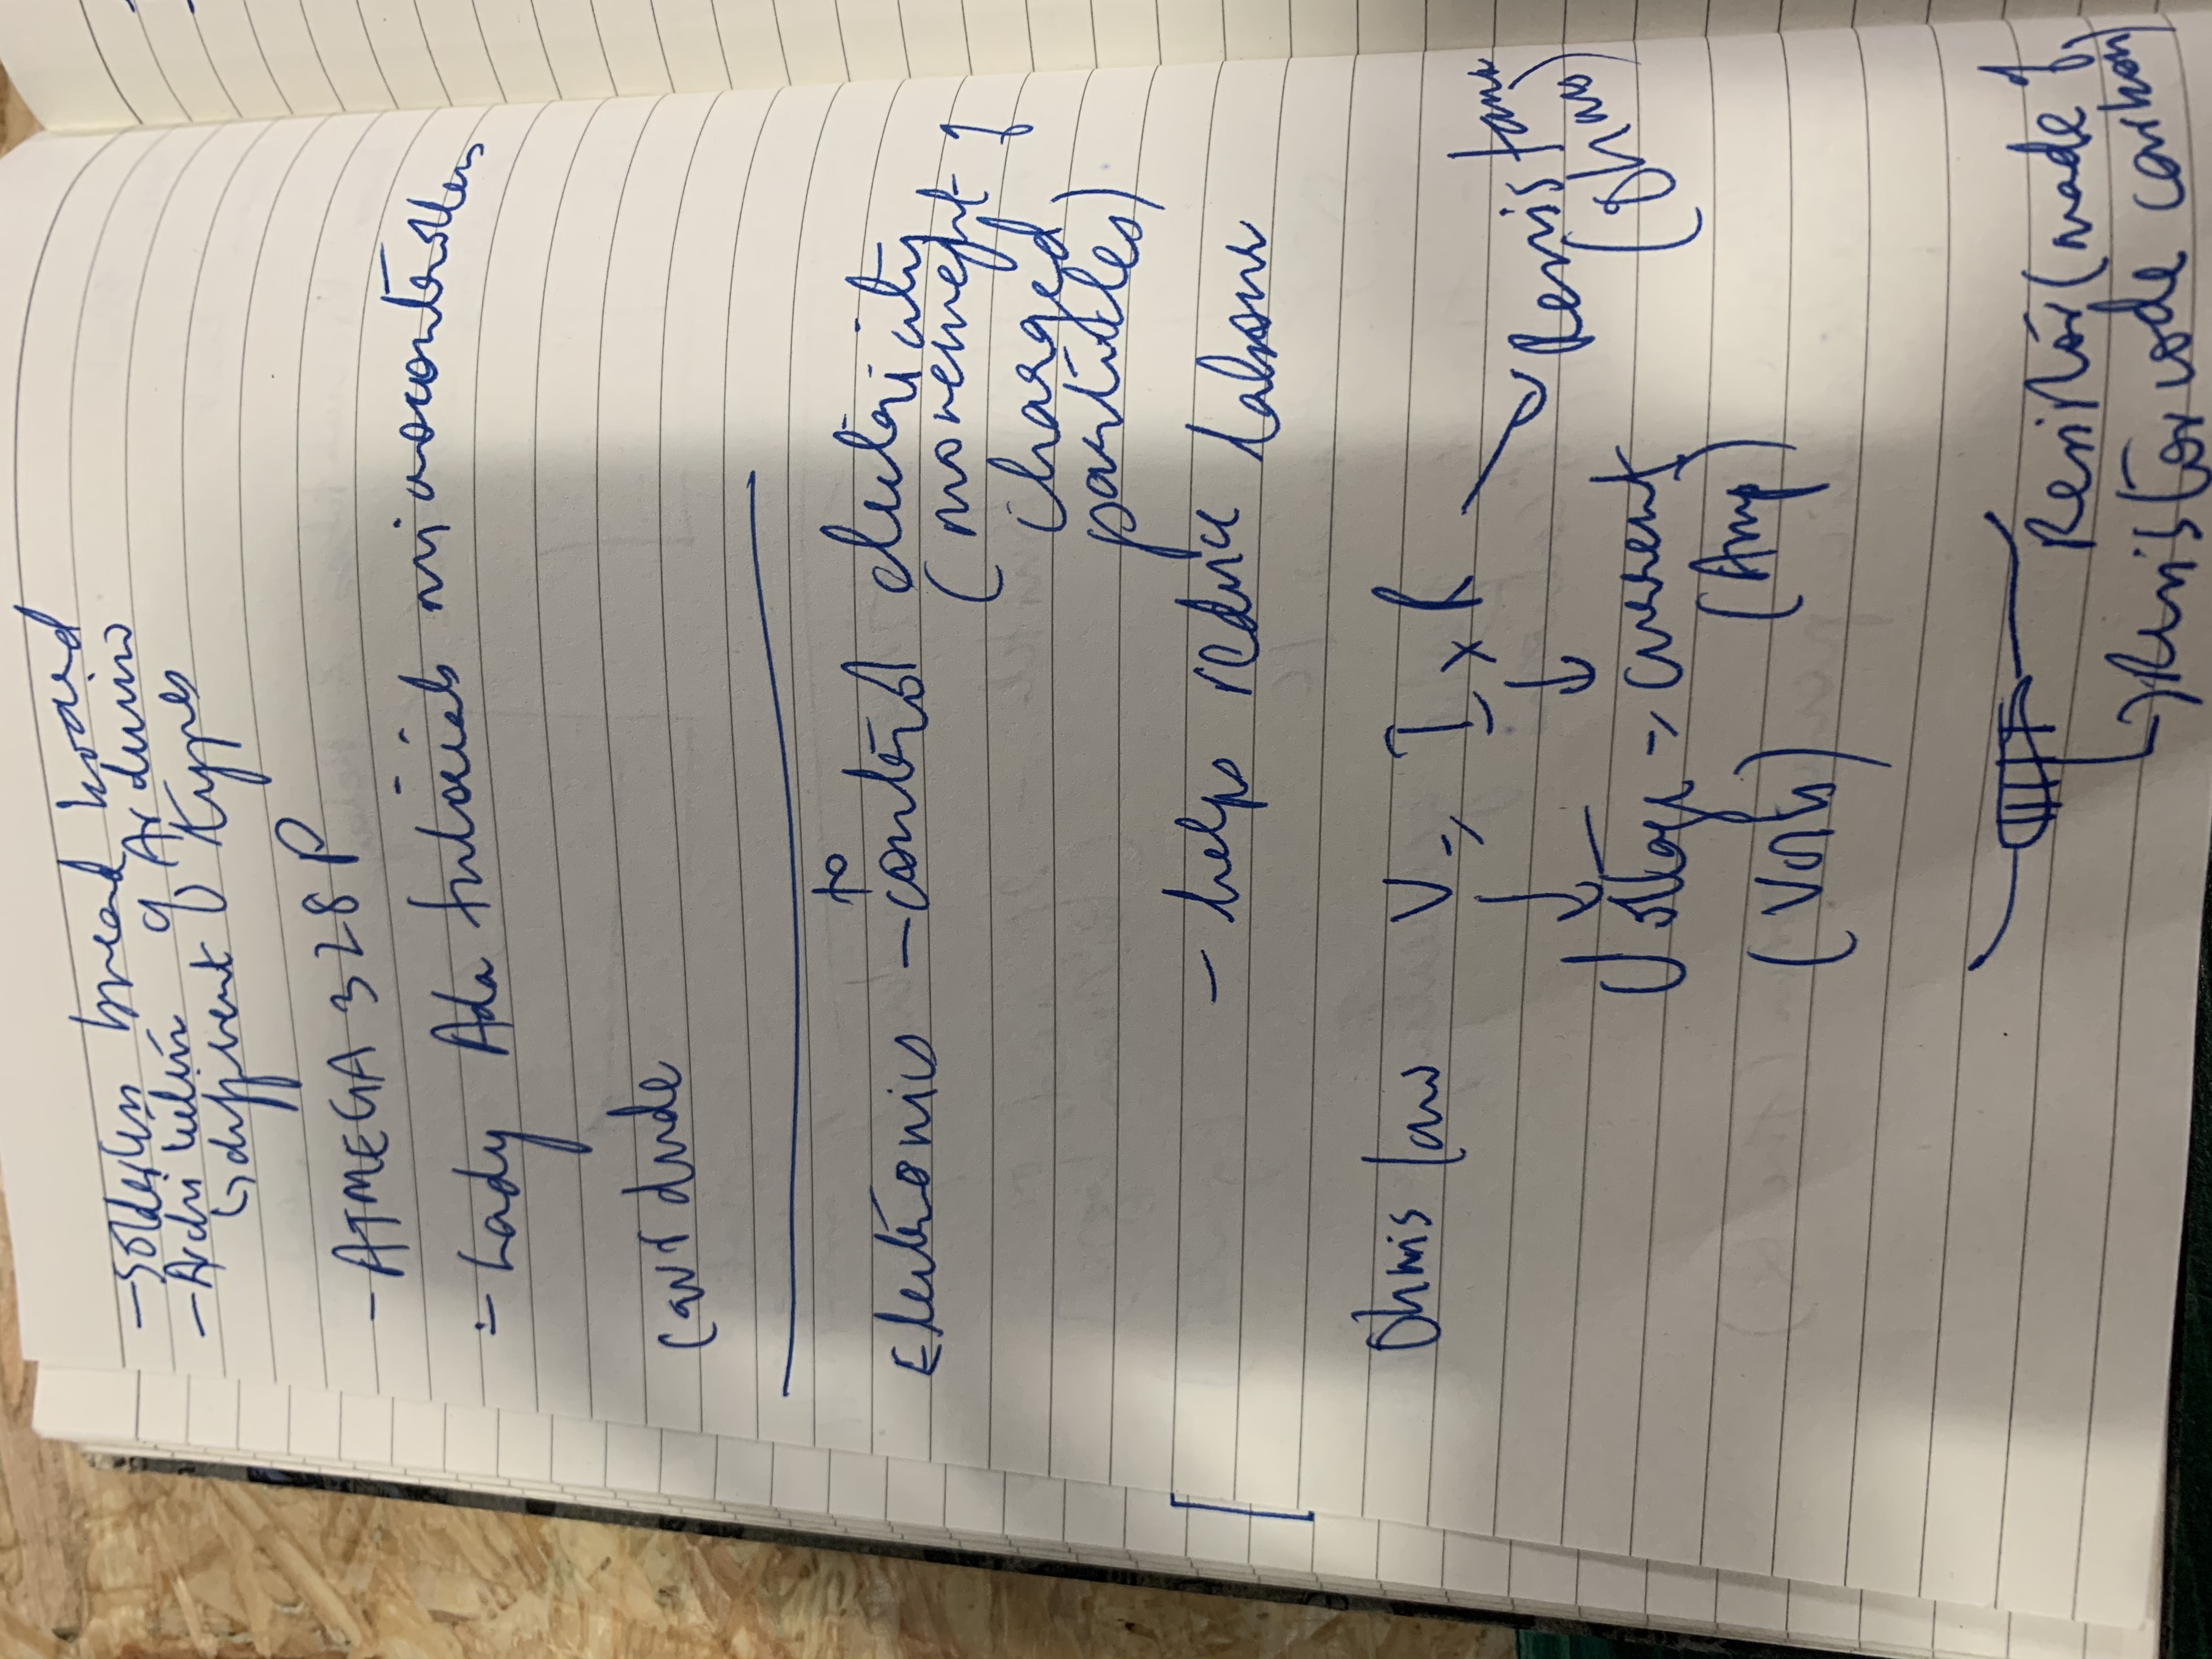 - Solderless bread board
- Architecture of Arduino
↳ different types
- ATMEGA 328P
- Lady Ada tutorials microcontrollers
(avr dude
to
Electronics - control electricity
(movement of
charged
particles)
- helps reduce labour
Ohm's law V = I x R
Resistance
(Ohms)
Voltage = current
(Amp)
(Volts)
Resistor (made of
carbon)
↳ Resistor code